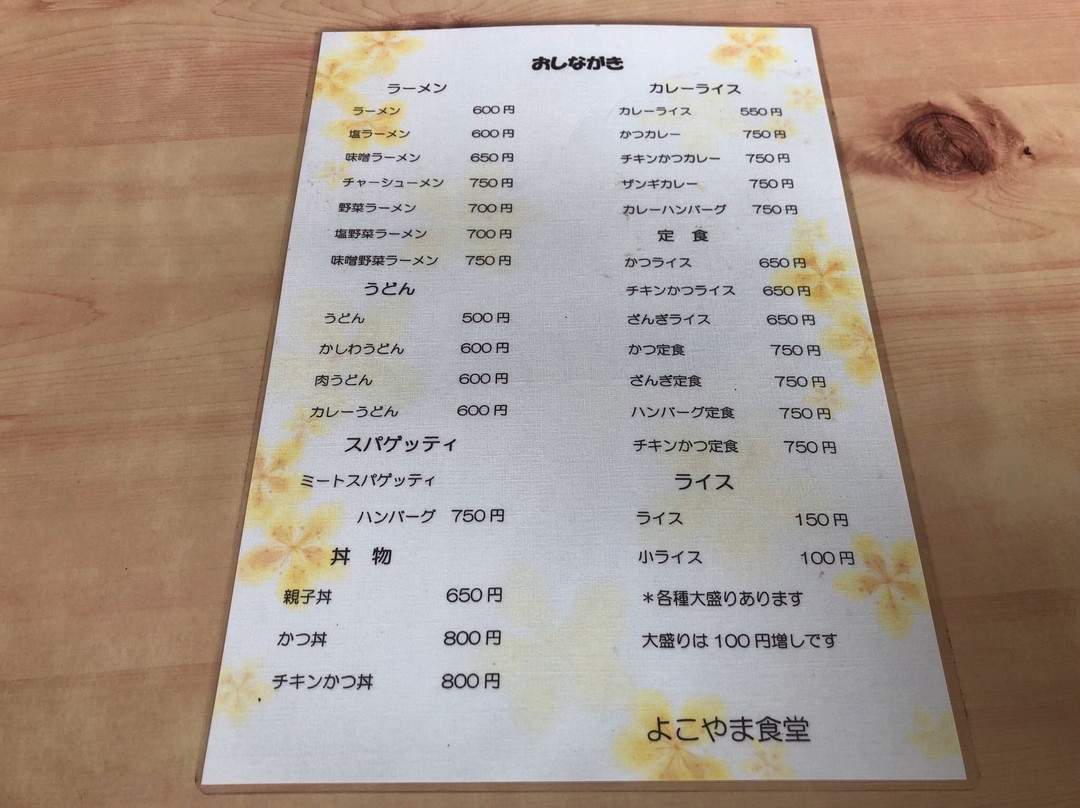 おしながき
ラーメン
ラーメン 600円
塩ラーメン 600円
味噌ラーメン 650円
チャーシューメン 750円
野菜ラーメン 700円
塩野菜ラーメン 700円
味噌野菜ラーメン 750円
うどん
うどん 500円
かしわうどん 600円
肉うどん 600円
カレーうどん 600円
スパゲッティ
ミートスパゲッティ
ハンバーグ 750円
丼 物
親子丼 650円
かつ丼 800円
チキンかつ丼 800円
カレーライス
カレーライス 550円
かつカレー 750円
チキンかつカレー 750円
ザンギカレー 750円
カレーハンバーグ 750円
定 食
かつライス 650円
チキンかつライス 650円
ざんぎライス 650円
かつ定食 750円
ざんぎ定食 750円
ハンバーグ定食 750円
チキンかつ定食 750円
ライス
ライス 150円
小ライス 100円
＊各種大盛りあります
大盛りは100円増しです
よこやま食堂